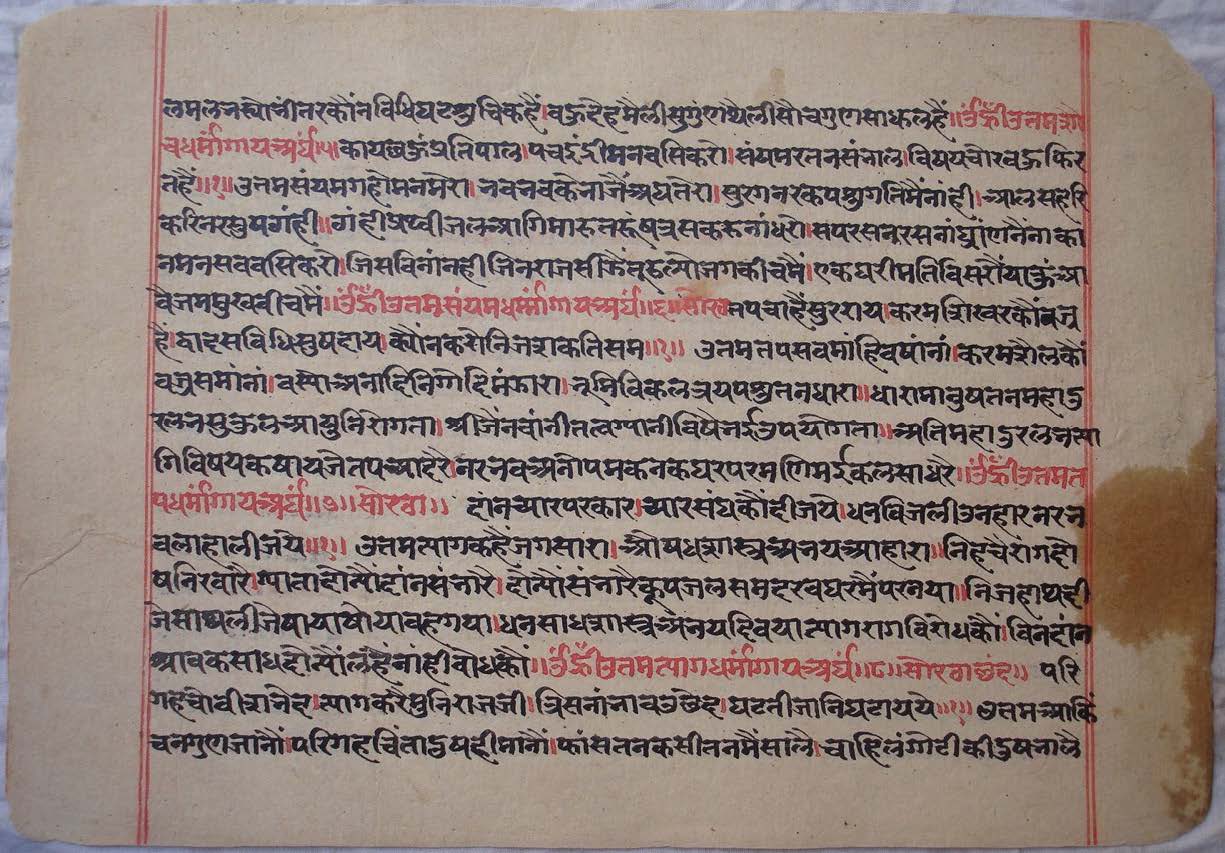 लमलनस्योनीनरकौंनविधिघटश्रुचिकहैं।वऊदेहमैलीसुगुणथैलीसौचगुणसाधलहै॥ॐह्रीउतमसौ
चधर्मांगायअर्घं॥५॥कायछऊंप्रतिपाल।पचइंद्रीमनवसिकरो।संयमरतनसंनाल।विषयचोरवऊफिर
तहैं॥१॥उतमसंयमगहौमनमेरा।नवनवकेनाजैंअघतेरा।सुरगनरकपश्रुगतिमैंनांही।आलसहरि
करिनसुषगंही।गंहीप्रथ्वीजलआगिमारुतरूंषत्रसकरुनाधरो।सपरसनरसनांघ्रांणनैंनाका
नमनसबवसिकरो।जिसविनांनहीजिनराजसीऊैंतूरुल्यौजगकीचमैं।एकघरीमतिविसरौंयाऊंआ
वैजममुखबीचमैं॥ॐह्रीउतमसंयमधर्मांगायअर्घं॥६॥सोरठातपचाहैंसुरराय।करमशिखरकौंवज्र
है।द्वादसविधिसुषदाय।क्यौंनकरौनिजशकतिसम॥१॥उतमतपसबमांहिवषांनां।करमशैलकौं
वज्रसमांनां।वस्योअनादिनिगोदिमंऊारा।नूमिविकलत्रयपश्रुतनधारा।धारामानुषतनमहादु
रलनसुकुलआयुनिरोगता।श्रीजैनवांनीतत्वग्यानीविषैनईउपयोगता॥अतिमहादुरलनत्या
गिविषयकषायजेतपआदरै।नरनवअनौपमकनकघरपरमणिमईकलसाधरै॥ॐह्रीउतमत
पधर्मांगायअर्घं॥७॥सोरठा॥दांनच्यारपरकार।च्यारसंघकौंदीजये।धनविजलीउनहारनरन
वलाहालीजये॥१॥उतमत्यागकहैंजगसारा।औषधशास्त्रअनयआहारा॥निहचैरागदो
षनिरवारै।ग्यातादौन्यौंदांनसंनारै।दौन्यौंसंनारैकूपजलसमदरबघरमैंपरनया।निजहाथदी
जेसाथलीजेषायाषोयावहगया।धनसाधशास्त्रअनयदिवयात्यागरागविरोधकौं।विनदांन
श्रावकसाधदौन्यौंलहैनांहीबोधकौं॥ॐह्रीउतमत्यागधर्मांगायअर्घं॥८॥सोरठाछंद॥परि
गहचौवीशनेद।त्यागकरैमुनिराजजी।त्रिसनांनावउछेद।घटतीजानिघटायये॥१॥उतमआकिं
चनगुणजानौं।परिगहचिंतादुषहीमानौं।फांसतनकसीतनमैंसालै।चाहिलंगोटीकीदुषनालै